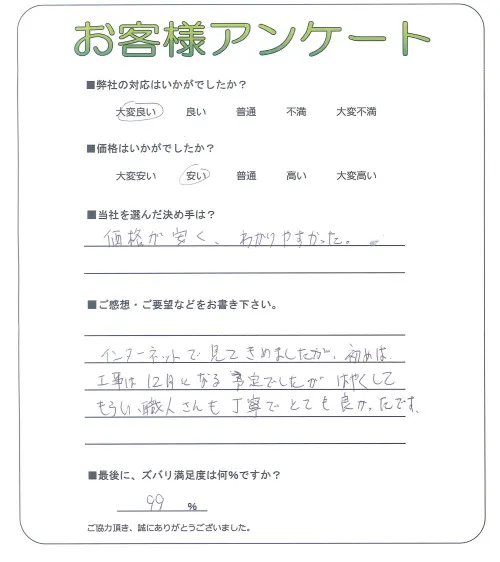 お客様アンケート
■弊社の対応はいかがでしたか？
大変良い 良い 普通 不満 大変不満
■価格はいかがでしたか？
大変安い 安い 普通 高い 大変高い
■当社を選んだ決め手は？
価格が安く、わかりやすかった。
■ご感想・ご要望などをお書き下さい。
インターネットで見てきめましたが、初めは
工事は12月になる予定でしたがはやくして
もらい、職人さんも丁寧でとても良かったです。
■最後に、ズバリ満足度は何%ですか？
99 %
ご協力頂き、誠にありがとうございました。